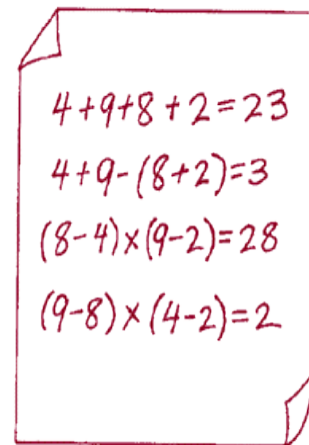 4+9+8+2=23
4+9-(8+2)=3
(8-4)×(9-2)=28
(9-8)×(4-2)=2